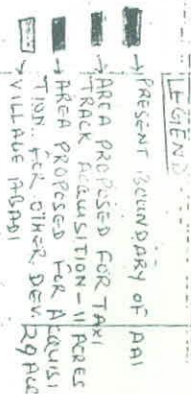 LEGEND
→ PRESENT BOUNDARY OF AAI
→ AREA PROPOSED FOR TAXI
TRACK ACQUISITION - 11 ACRES
→ AREA PROPOSED FOR ACQUISI
TION.. FOR OTHER DEV. 29 ACR
→ VILLAGE ABADI